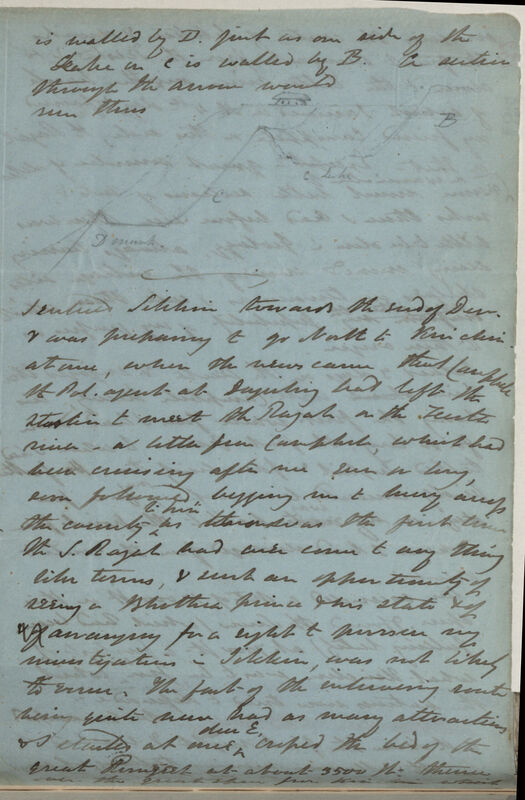 is walled by D. just as one side of the
Lake on C is walled by B. A section
through the arrow would
run thus
B
C Lake
C
D
I entered Sikkim towards the end of Decr.
& was preparing to go North to Kinchin
at once, when the news came that Campbell
the Pol. agent at Darjeeling had left the
station to meet the Rajah on the Teesta
river. a letter from Campbell, which had
been cruising after me ever so long,
soon followed begging me to hurry across
the country to him as this was the first time
the S. Rajah had ever come to any thing
like terms, & such an opportunity of
seeing a Bhothea prince & his state & of
arranging for a right to pursue my
investigations in Sikkim, was not likely
to occur. The fact of the intervening route
being quite new had as many attractions
& I started at once, due E, crossed the bed of the
great Rungeet at about 3500 ft. thence